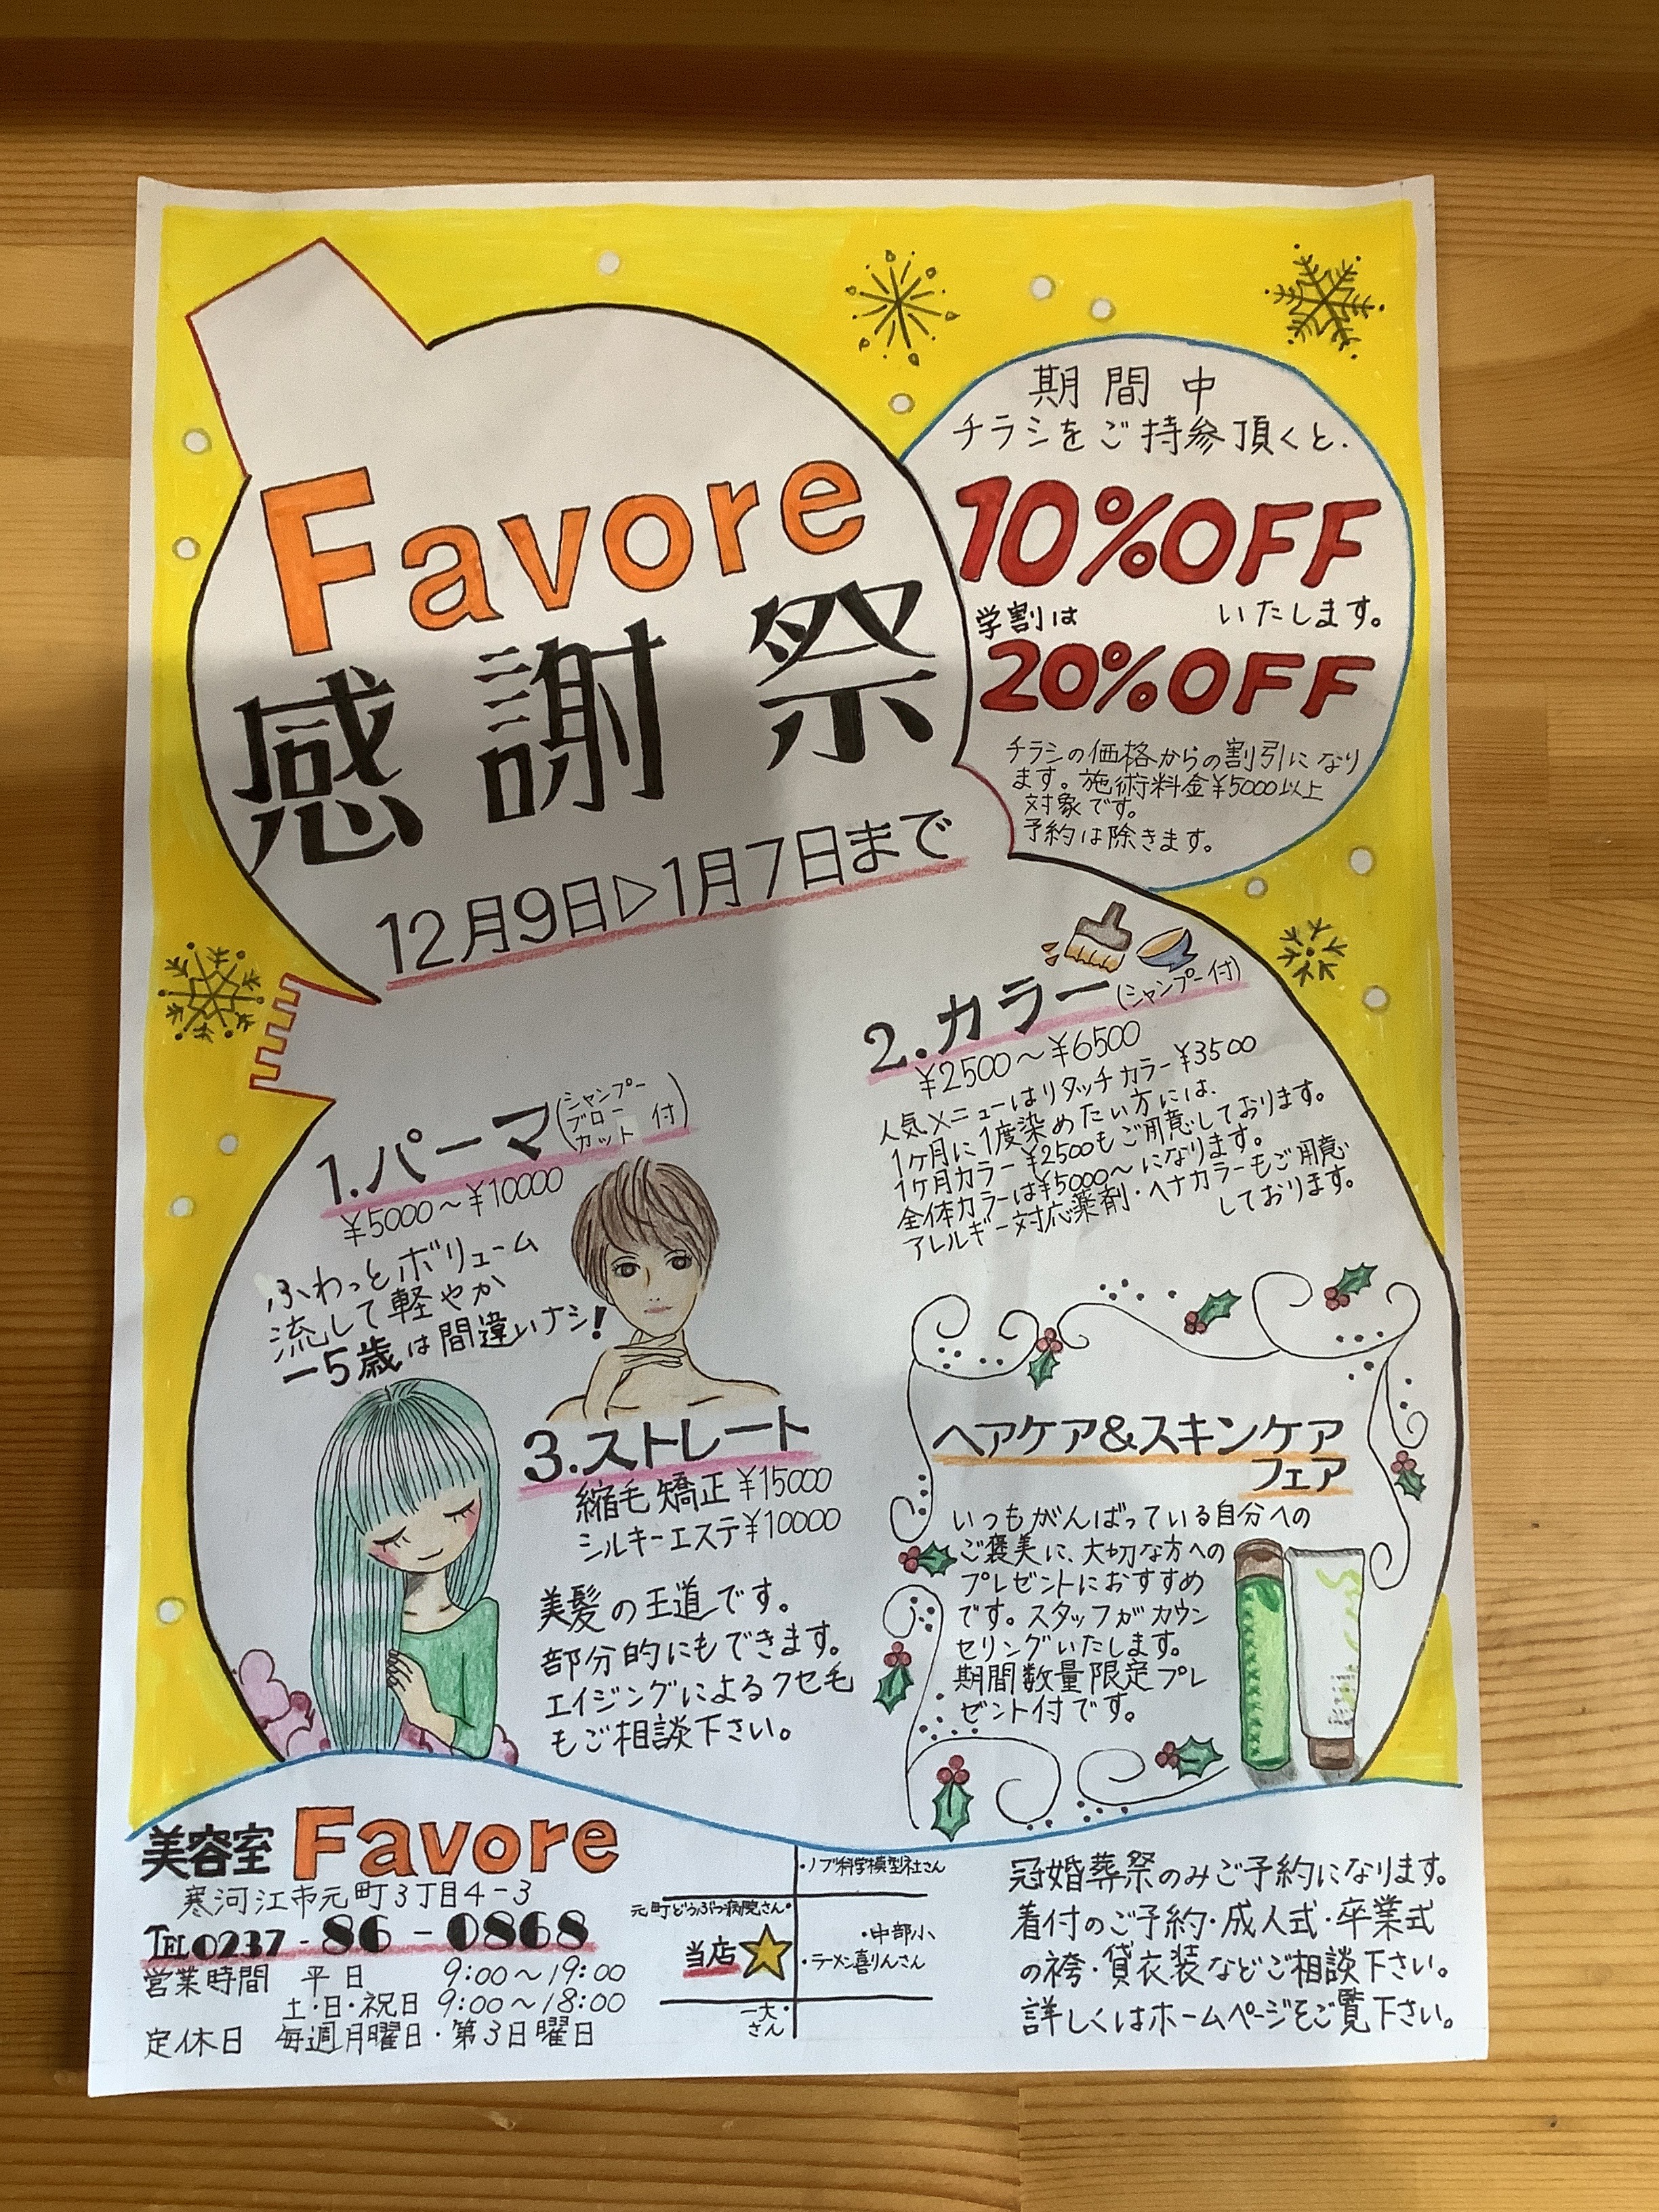 Favore
感謝祭
12月9日▷1月7日まで
期間中
チラシをご持参頂くと、
10%OFF
いたします。
学割は
20%OFF
チラシの価格からの割引になり
ます。施術料金¥5000以上
対象です。
予約は除きます。
1.パーマ(シャンプー
ブロー
カット 付)
¥5000～¥10000
ふわっとボリューム
流して軽やか
－5歳は間違いナシ!
2.カラー(シャンプー付)
¥2500～¥6500
人気メニューはリタッチカラー¥3500
1ヶ月に1度染めたい方には、
1ヶ月カラー¥2500もご用意しております。
全体カラーは¥5000～になります。
アレルギー対応薬剤・ヘナカラーもご用意
しております。
3.ストレート
縮毛矯正¥15000
シルキーエステ¥10000
美髪の王道です。
部分的にもできます。
エイジングによるクセ毛
もご相談下さい。
ヘアケア&スキンケア
フェア
いつもがんばっている自分への
ご褒美に、大切な方への
プレゼントにおすすめ
です。スタッフがカウン
セリングいたします。
期間数量限定プレ
ゼント付です。
美容室 Favore
寒河江市元町3丁目4-3
TEL0237-86-0868
営業時間 平日 9:00～19:00
土・日・祝日 9:00～18:00
定休日 毎週月曜日・第3日曜日
・ノブ科学模型社さん
元町どうぶつ病院さん・
・中部小
当店
・ラーメン喜りんさん
一大・
さん
冠婚葬祭のみご予約になります。
着付のご予約・成人式・卒業式
の袴・貸衣装などご相談下さい。
詳しくはホームページをご覧下さい。